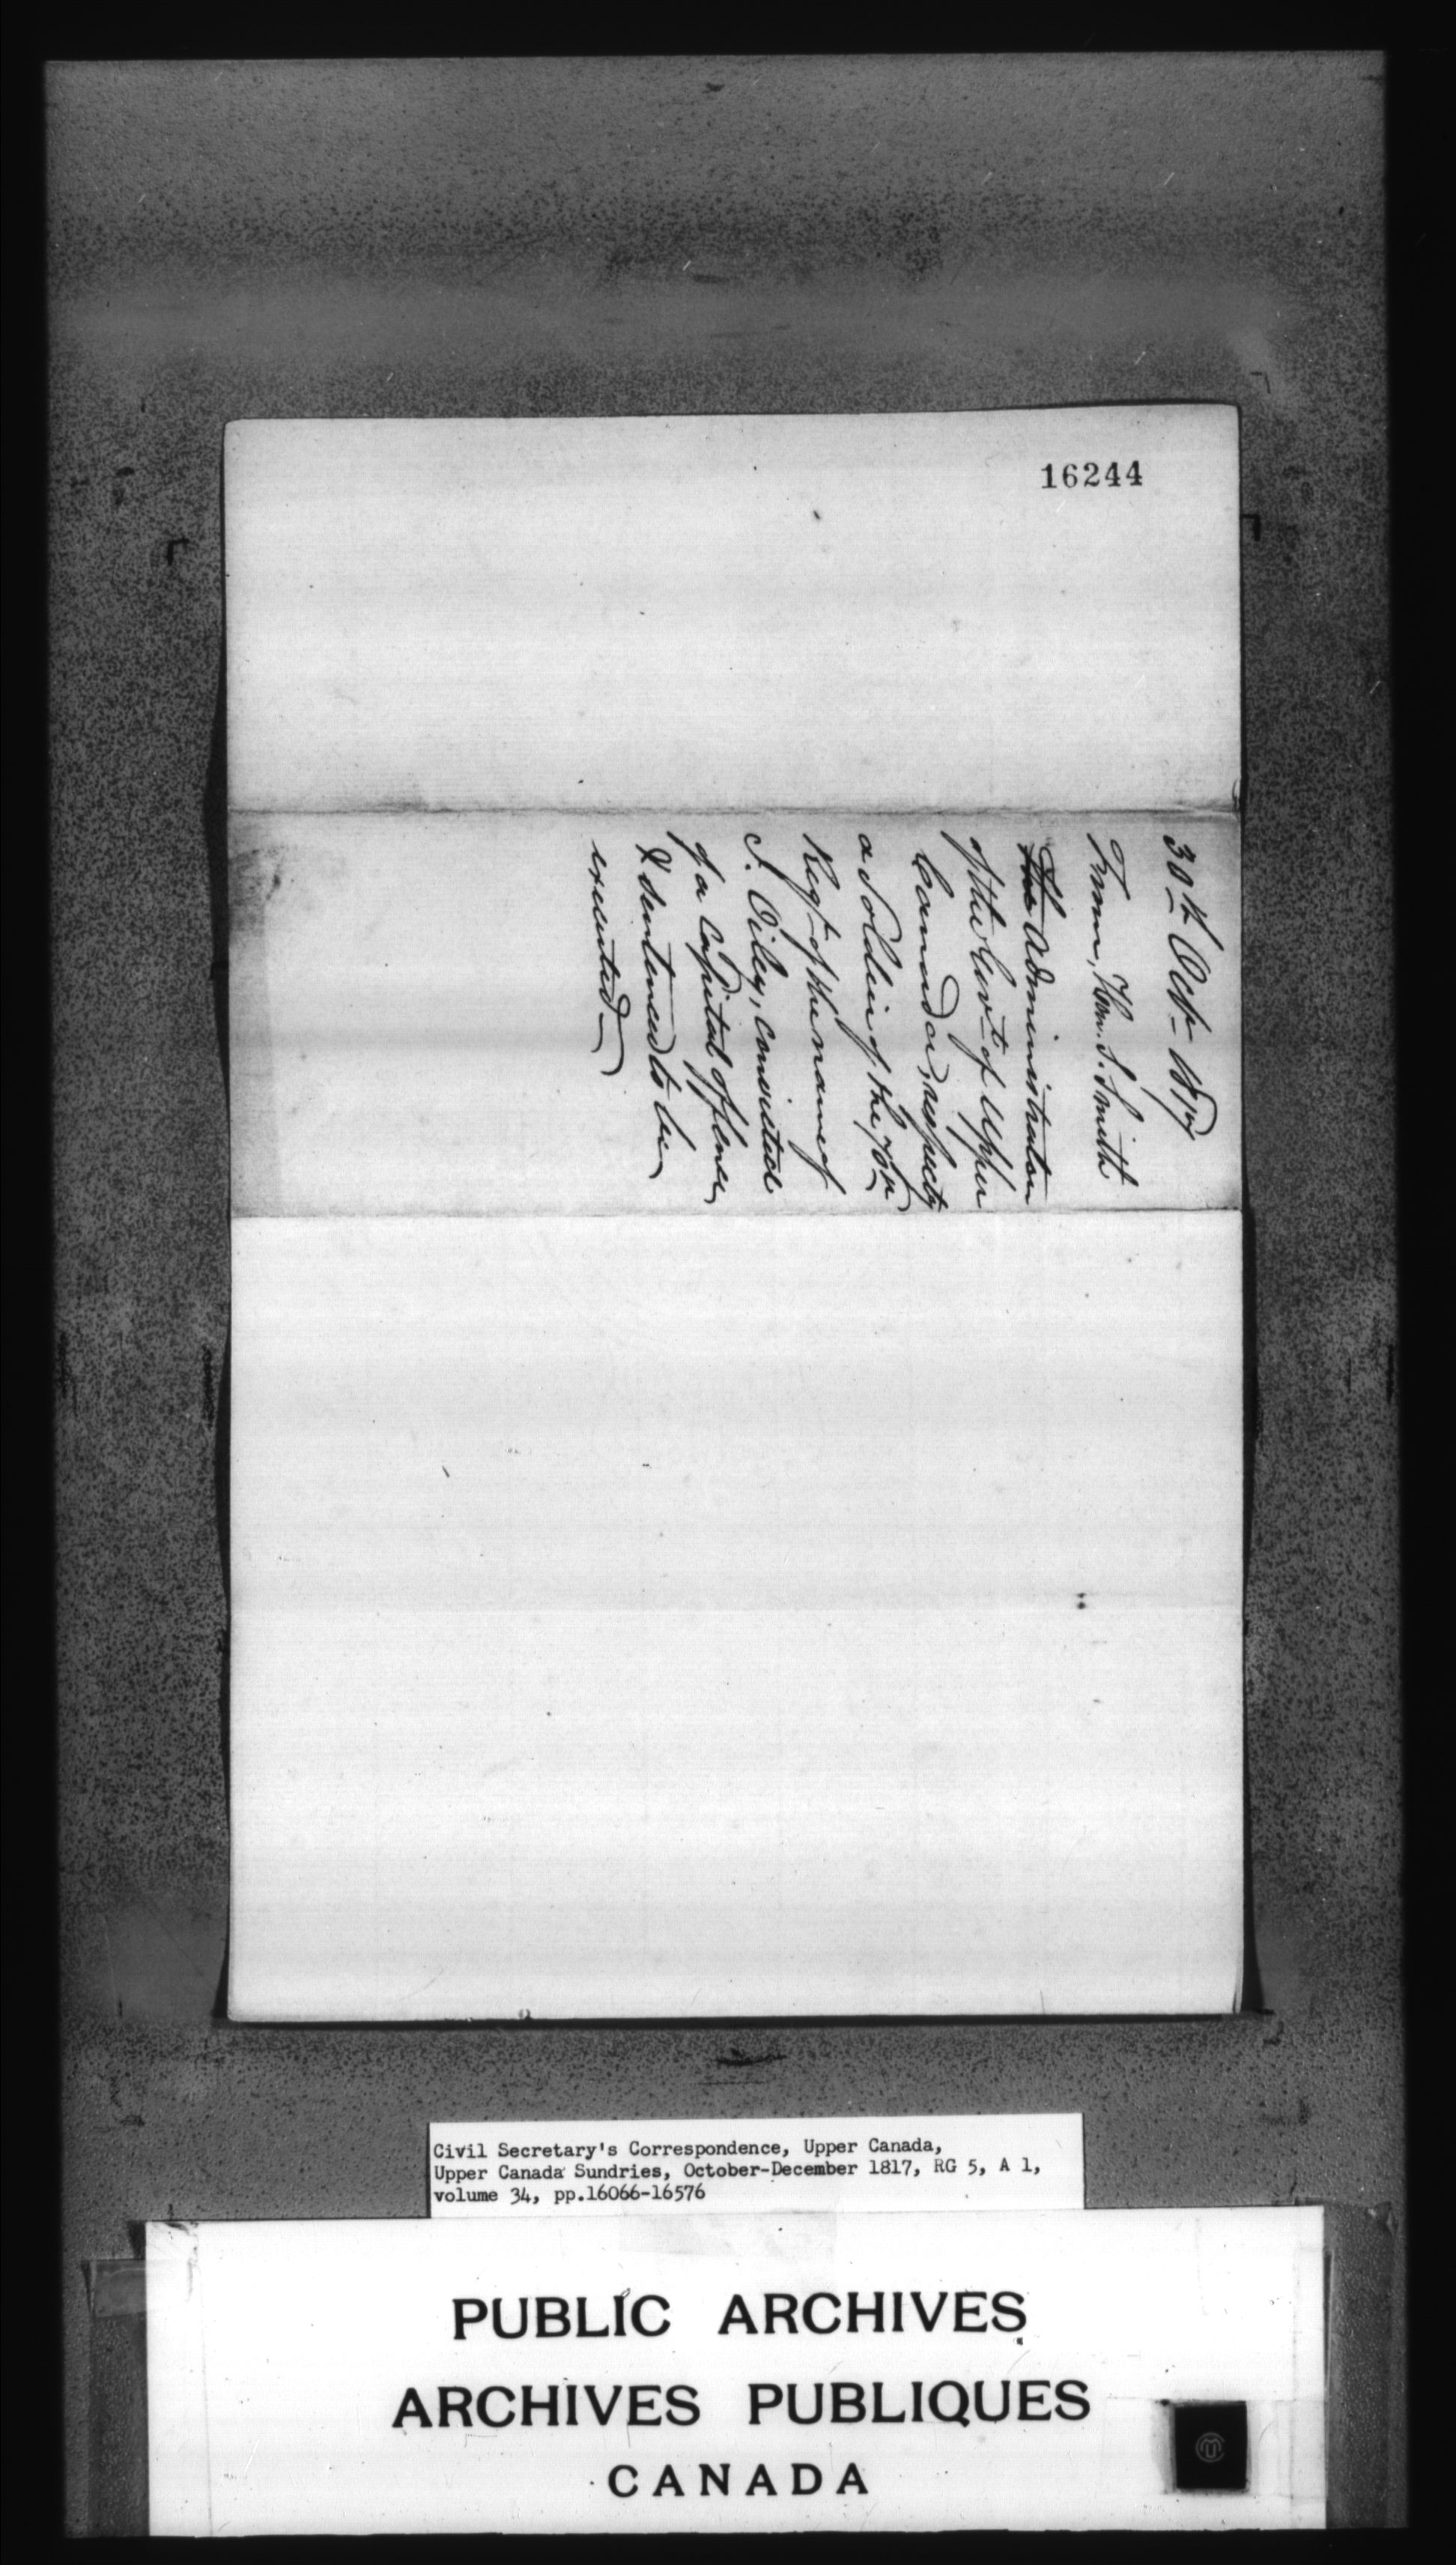 16244
30th Octr 1817
From, Hon. S. Smith
The Administrator
of the Govt. of Upper
Canada, respectg
a Soldier of the 70th
Regt. of the name of
J. Oiley, convicted
of a Capital offence
& sentenced to be
executed
Civil Secretary's Correspondence, Upper Canada,
Upper Canada Sundries, October-December 1817, RG 5, A 1,
volume 34, pp.16066-16576
PUBLIC ARCHIVES
ARCHIVES PUBLIQUES
CANADA